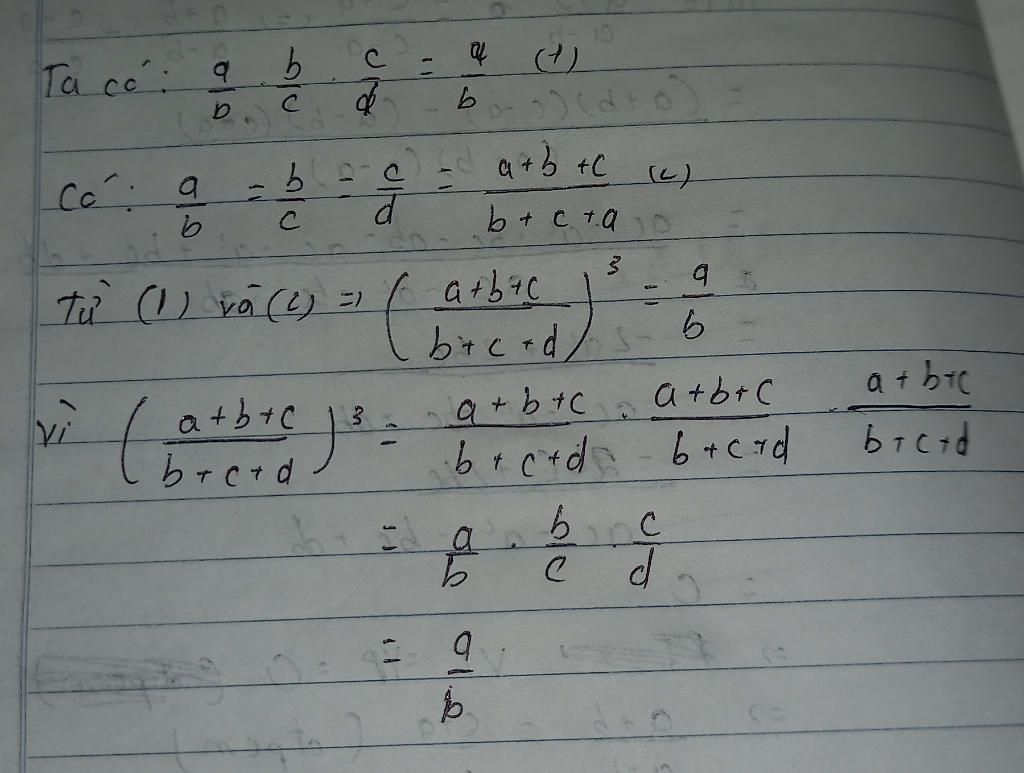 Ta có: a/b . b/c . c/d = a/b (1)
Có: a/b = b/c = c/d = (a+b+c)/(b+c+a) (2)
Từ (1) và (2) => ((a+b+c)/(b+c+d))³ = a/b
Vì ((a+b+c)/(b+c+d))³ = (a+b+c)/(b+c+d) . (a+b+c)/(b+c+d) . (a+b+c)/(b+c+d)
= a/b . b/c . c/d
= a/b